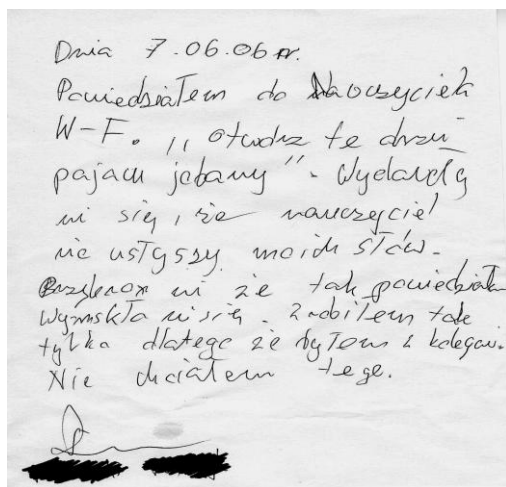 Dnia 7.06.06 r.
Powiedziałem do Nauczyciela
W-F. ,, otwórz te drzwi
pajacu jebany". Wydawało
mi się, że nauczyciel
nie usłyszy moich słów.
mi że tak powiedziałem
wymskła mi się. Zrobiłem tak
tylko dlatego że byłem z kolegami.
Nie chciałem tego.